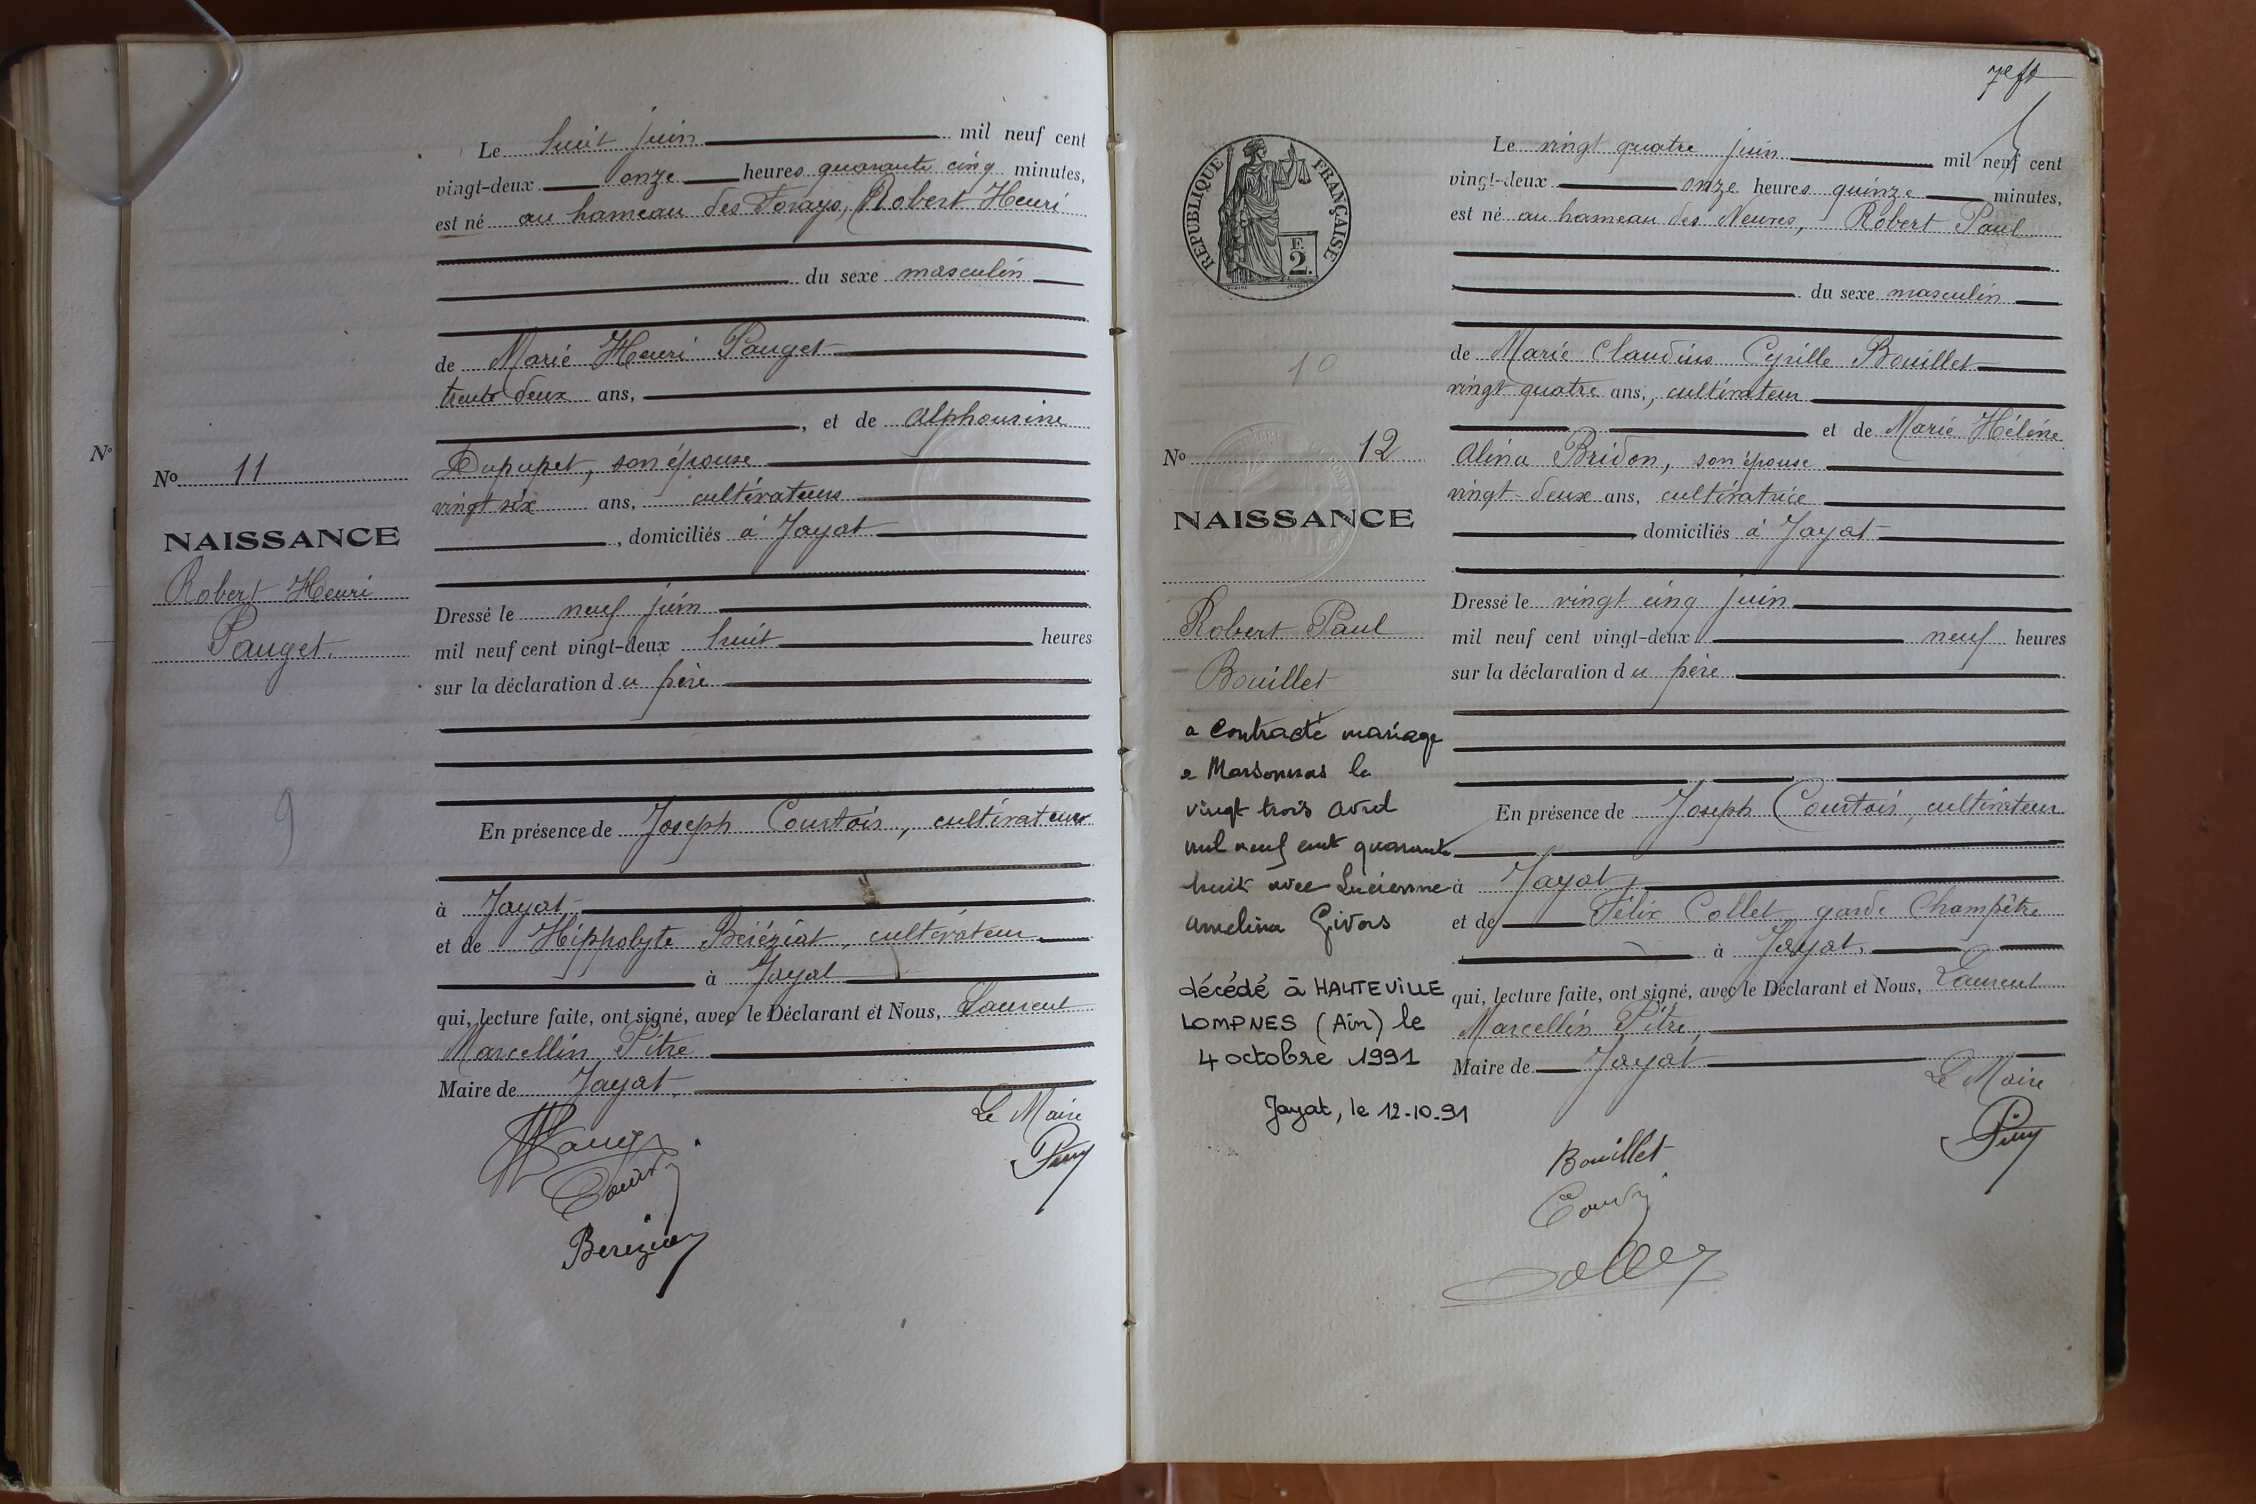 Le huit juin mil neuf cent
vingt-deux onze heures quarante cinq minutes,
est né au hameau des Forays, Robert Henri
du sexe masculin
de Marie Henri Pauget
trente deux ans,
, et de Alphonsine
Dupupet, son épouse
vingt six ans, cultivateurs
, domiciliés à Jayat
Dressé le neuf juin
mil neuf cent vingt-deux huit heures
sur la déclaration du père
En présence de Joseph Courtois, cultivateur
à Jayat
et de Hippolyte Béréziat, cultivateur
à Jayat
qui, lecture faite, ont signé, avec le Déclarant et Nous, Laurent
Marcellin Pitre
Maire de Jayat,
Le Maire
No
No 11
NAISSANCE
Robert Henri
Pauget.
9
7e ft
REPUBLIQUE FRANÇAISE
F.
2.
Le vingt quatre juin mil neuf cent
vingt-deux onze heures quinze minutes,
est né au hameau des Neuves, Robert Paul
du sexe masculin
de Marie Claudius Cyrille Bouillet
vingt quatre ans, cultivateur
et de Marie Hélène
Alina Bridon, son épouse
vingt-deux ans, cultivatrice
domiciliés à Jayat
Dressé le vingt cinq juin
mil neuf cent vingt-deux neuf heures
sur la déclaration du père
En présence de Joseph Courtois, cultivateur
à Jayat,
et de Félix Collet, garde Champêtre
à Jayat,
qui, lecture faite, ont signé, avec le Déclarant et Nous, Laurent
Marcellin Pitre,
Maire de Jayat
Le Maire
Bouillet
10
No 12
NAISSANCE
Robert Paul
Bouillet
a contracté mariage
a Marsonnas le
vingt trois avril
mil neuf cent quarante
huit avec Lucienne
Amelina Givors
décédé à HAUTEVILLE
LOMPNES (Ain) le
4 octobre 1991
Jayat, le 12-10-91